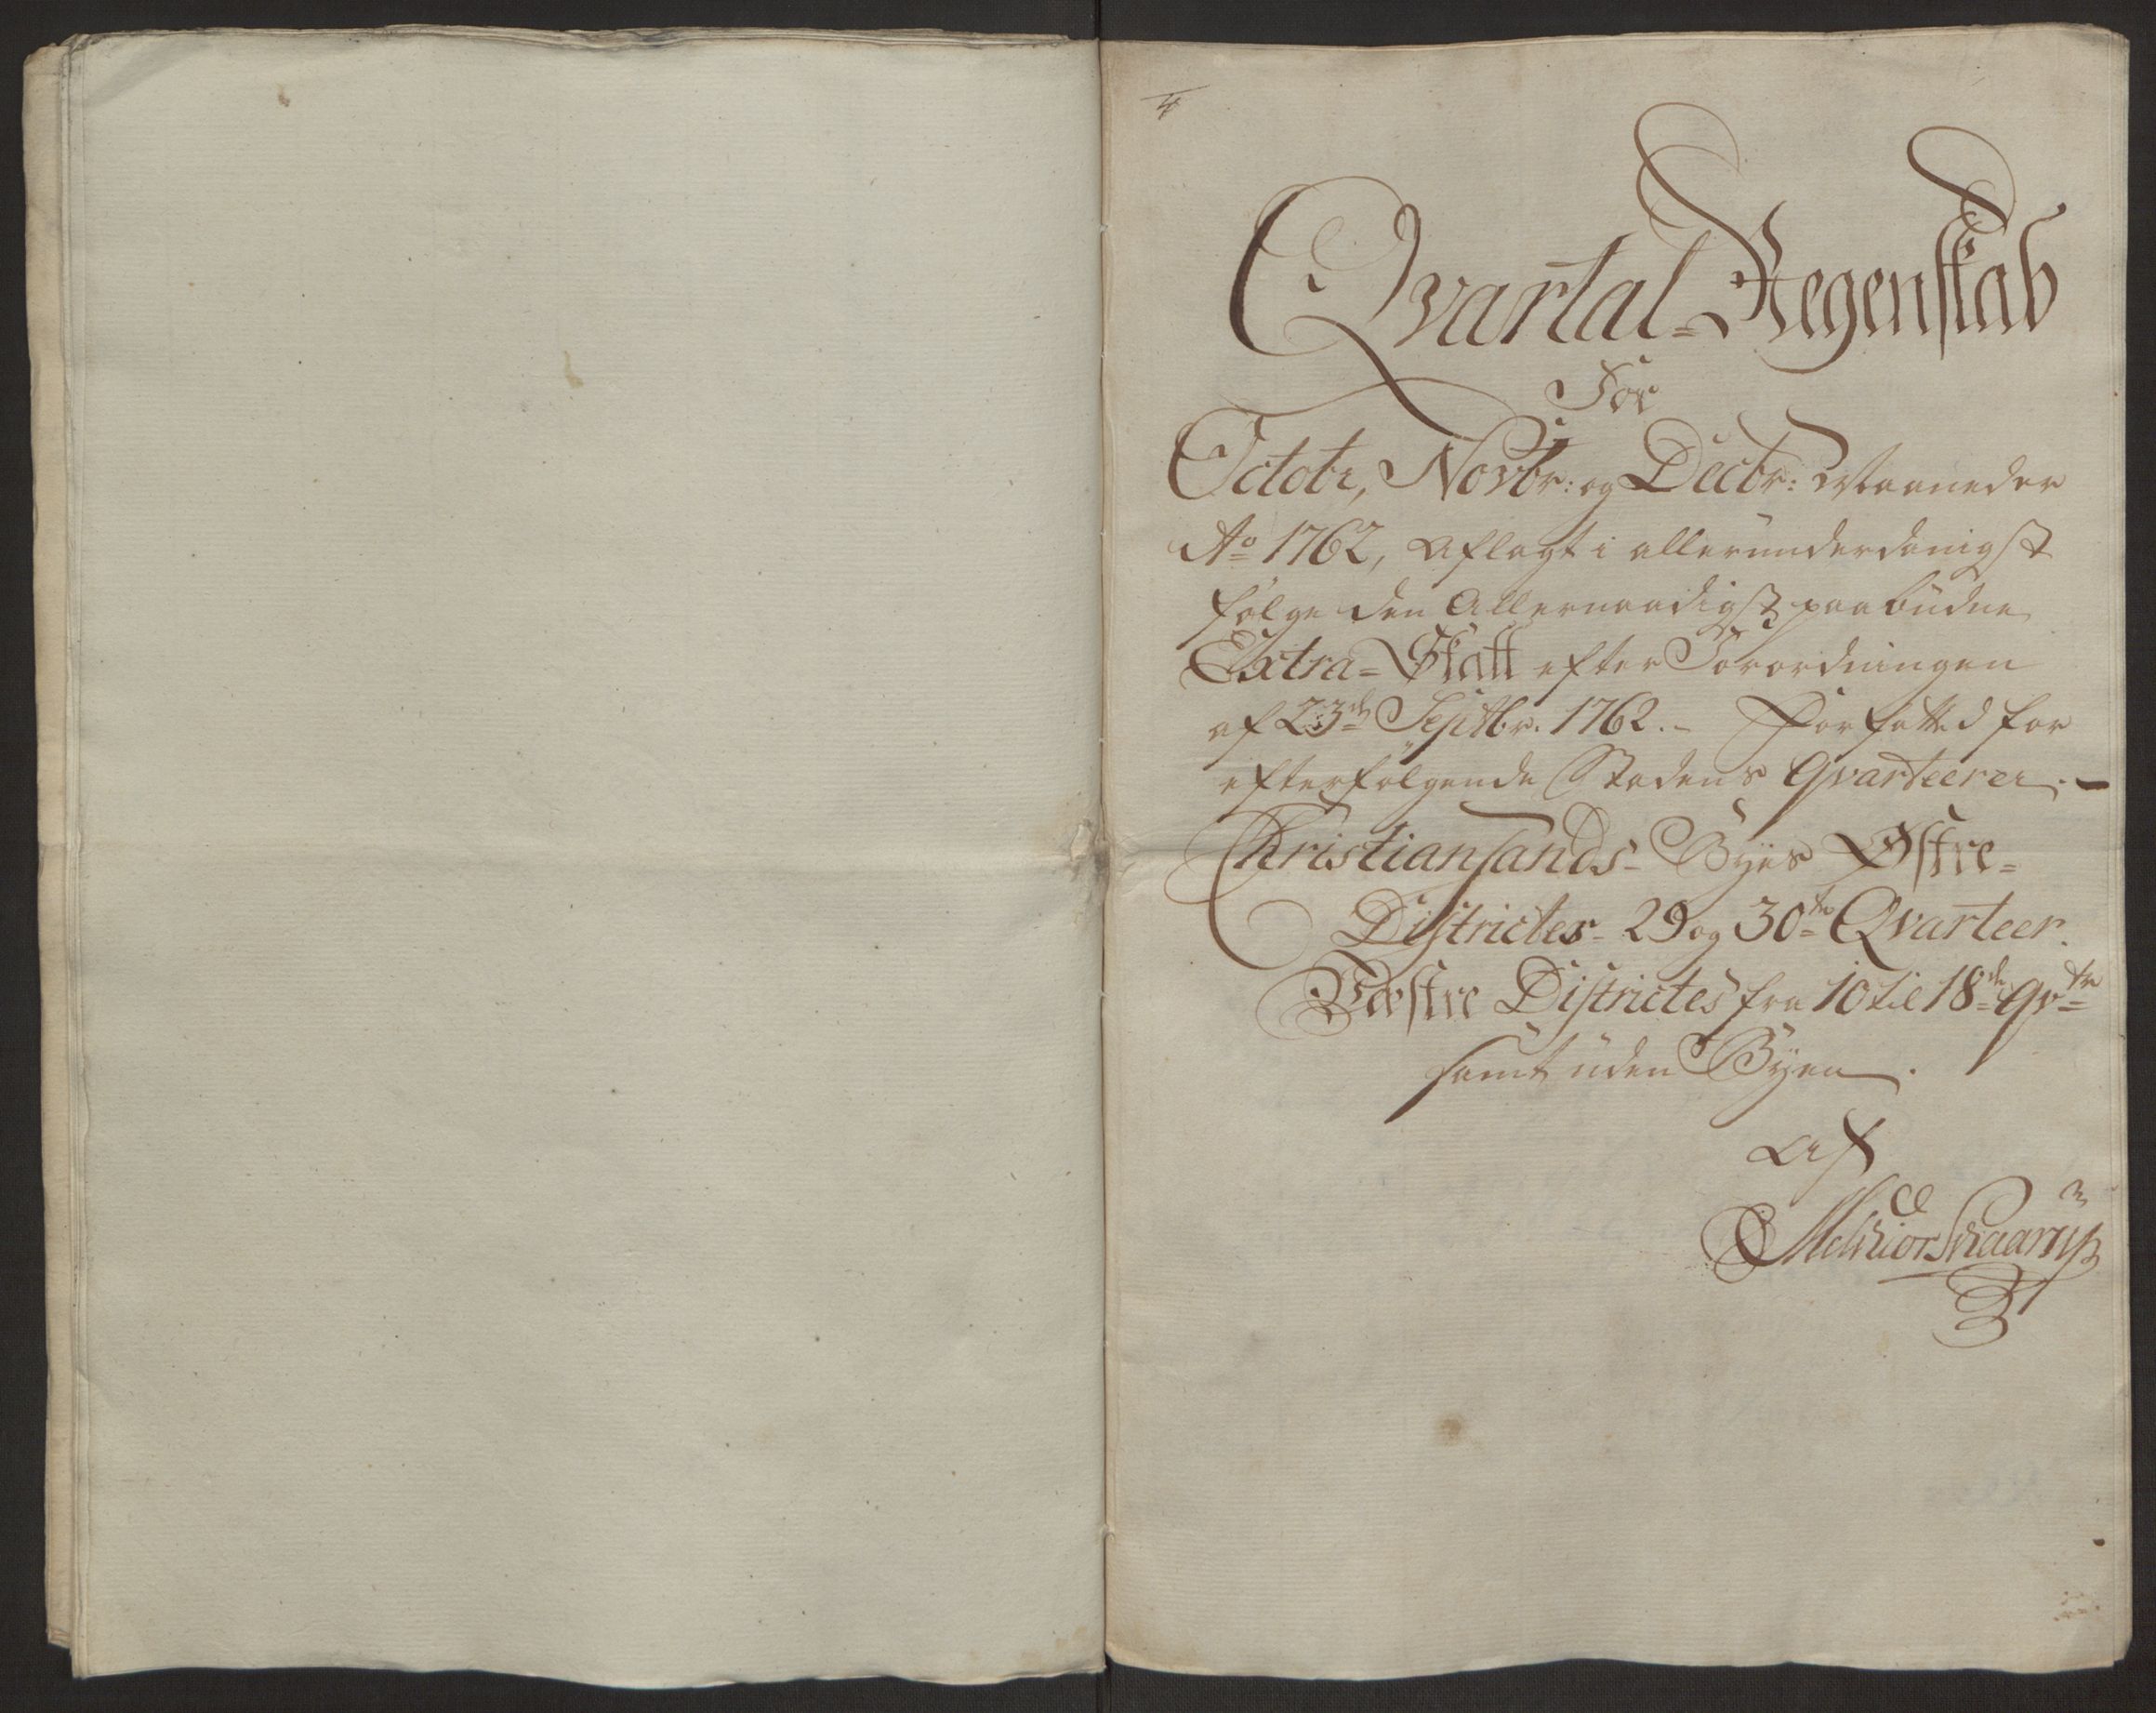 4
Qvartal-Regenskab
For
Octobr, Novbr: og Decbr: Maaneder
Ao 1762, Aflagt i allerunderdanigst
følge den Allernaadigst paabudne
Extra-Skatt efter Forordningen
af 23de Septbr. 1762.- Forfatted for
efterfølgende Stadens Qvarteerer.-
Christiansands- Byes Østre-
Districtes- 29 og 30te Qvarteer.
Væstre Districtes fra 10 til 18de Qvtr
samt uden Byen.
Af
Melchior